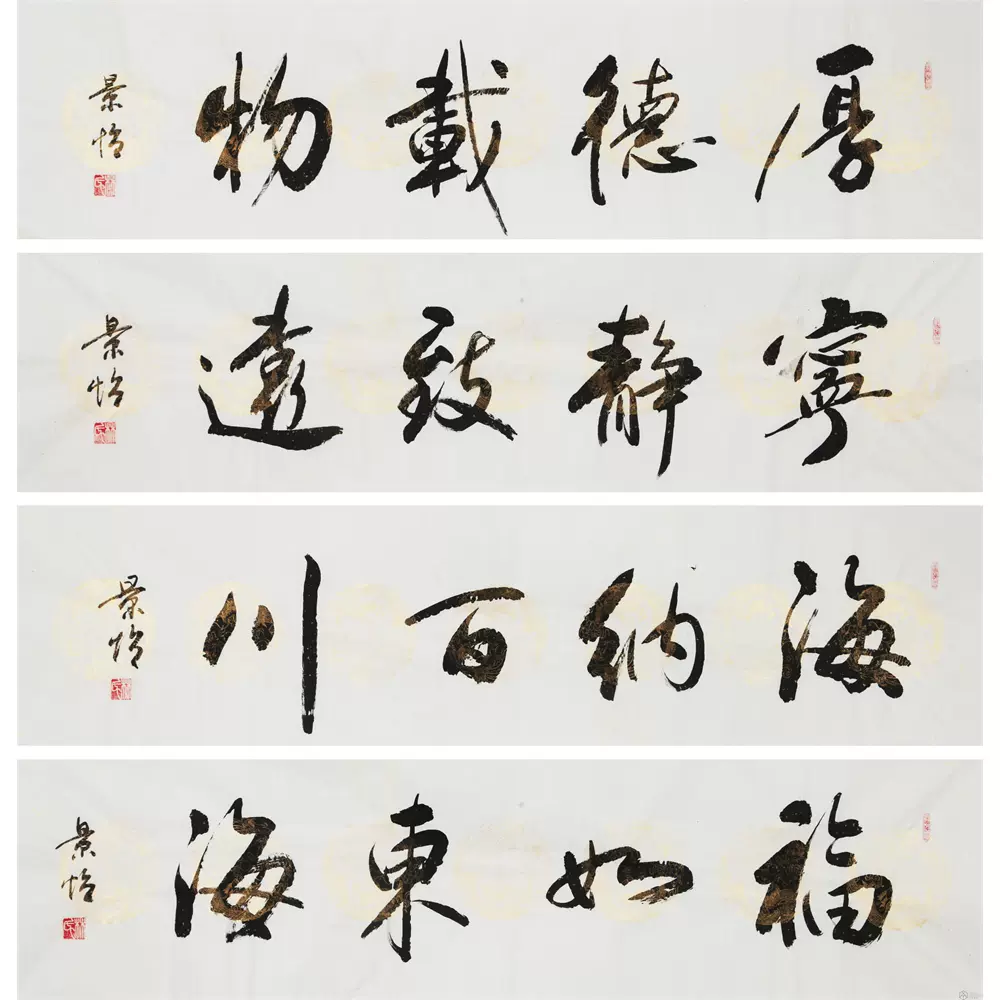 厚德載物
景怡
寧靜致遠
景怡
海納百川
景怡
福如東海
景怡